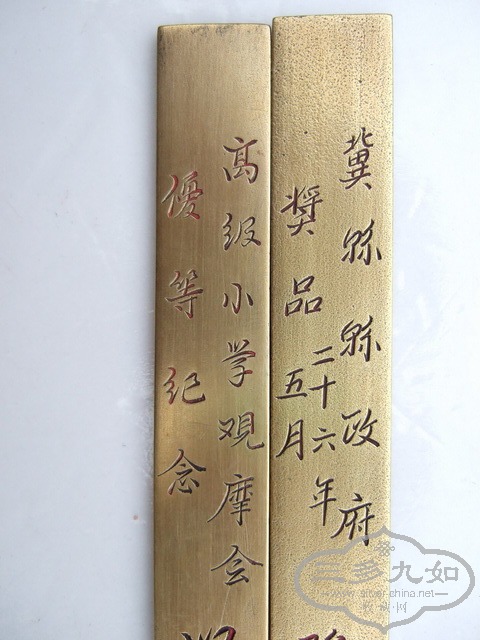 冀縣縣政府
獎品
二十六年
五月
高级小学观摩会
優等纪念
三多九如
www.silver-china.net
收藏网